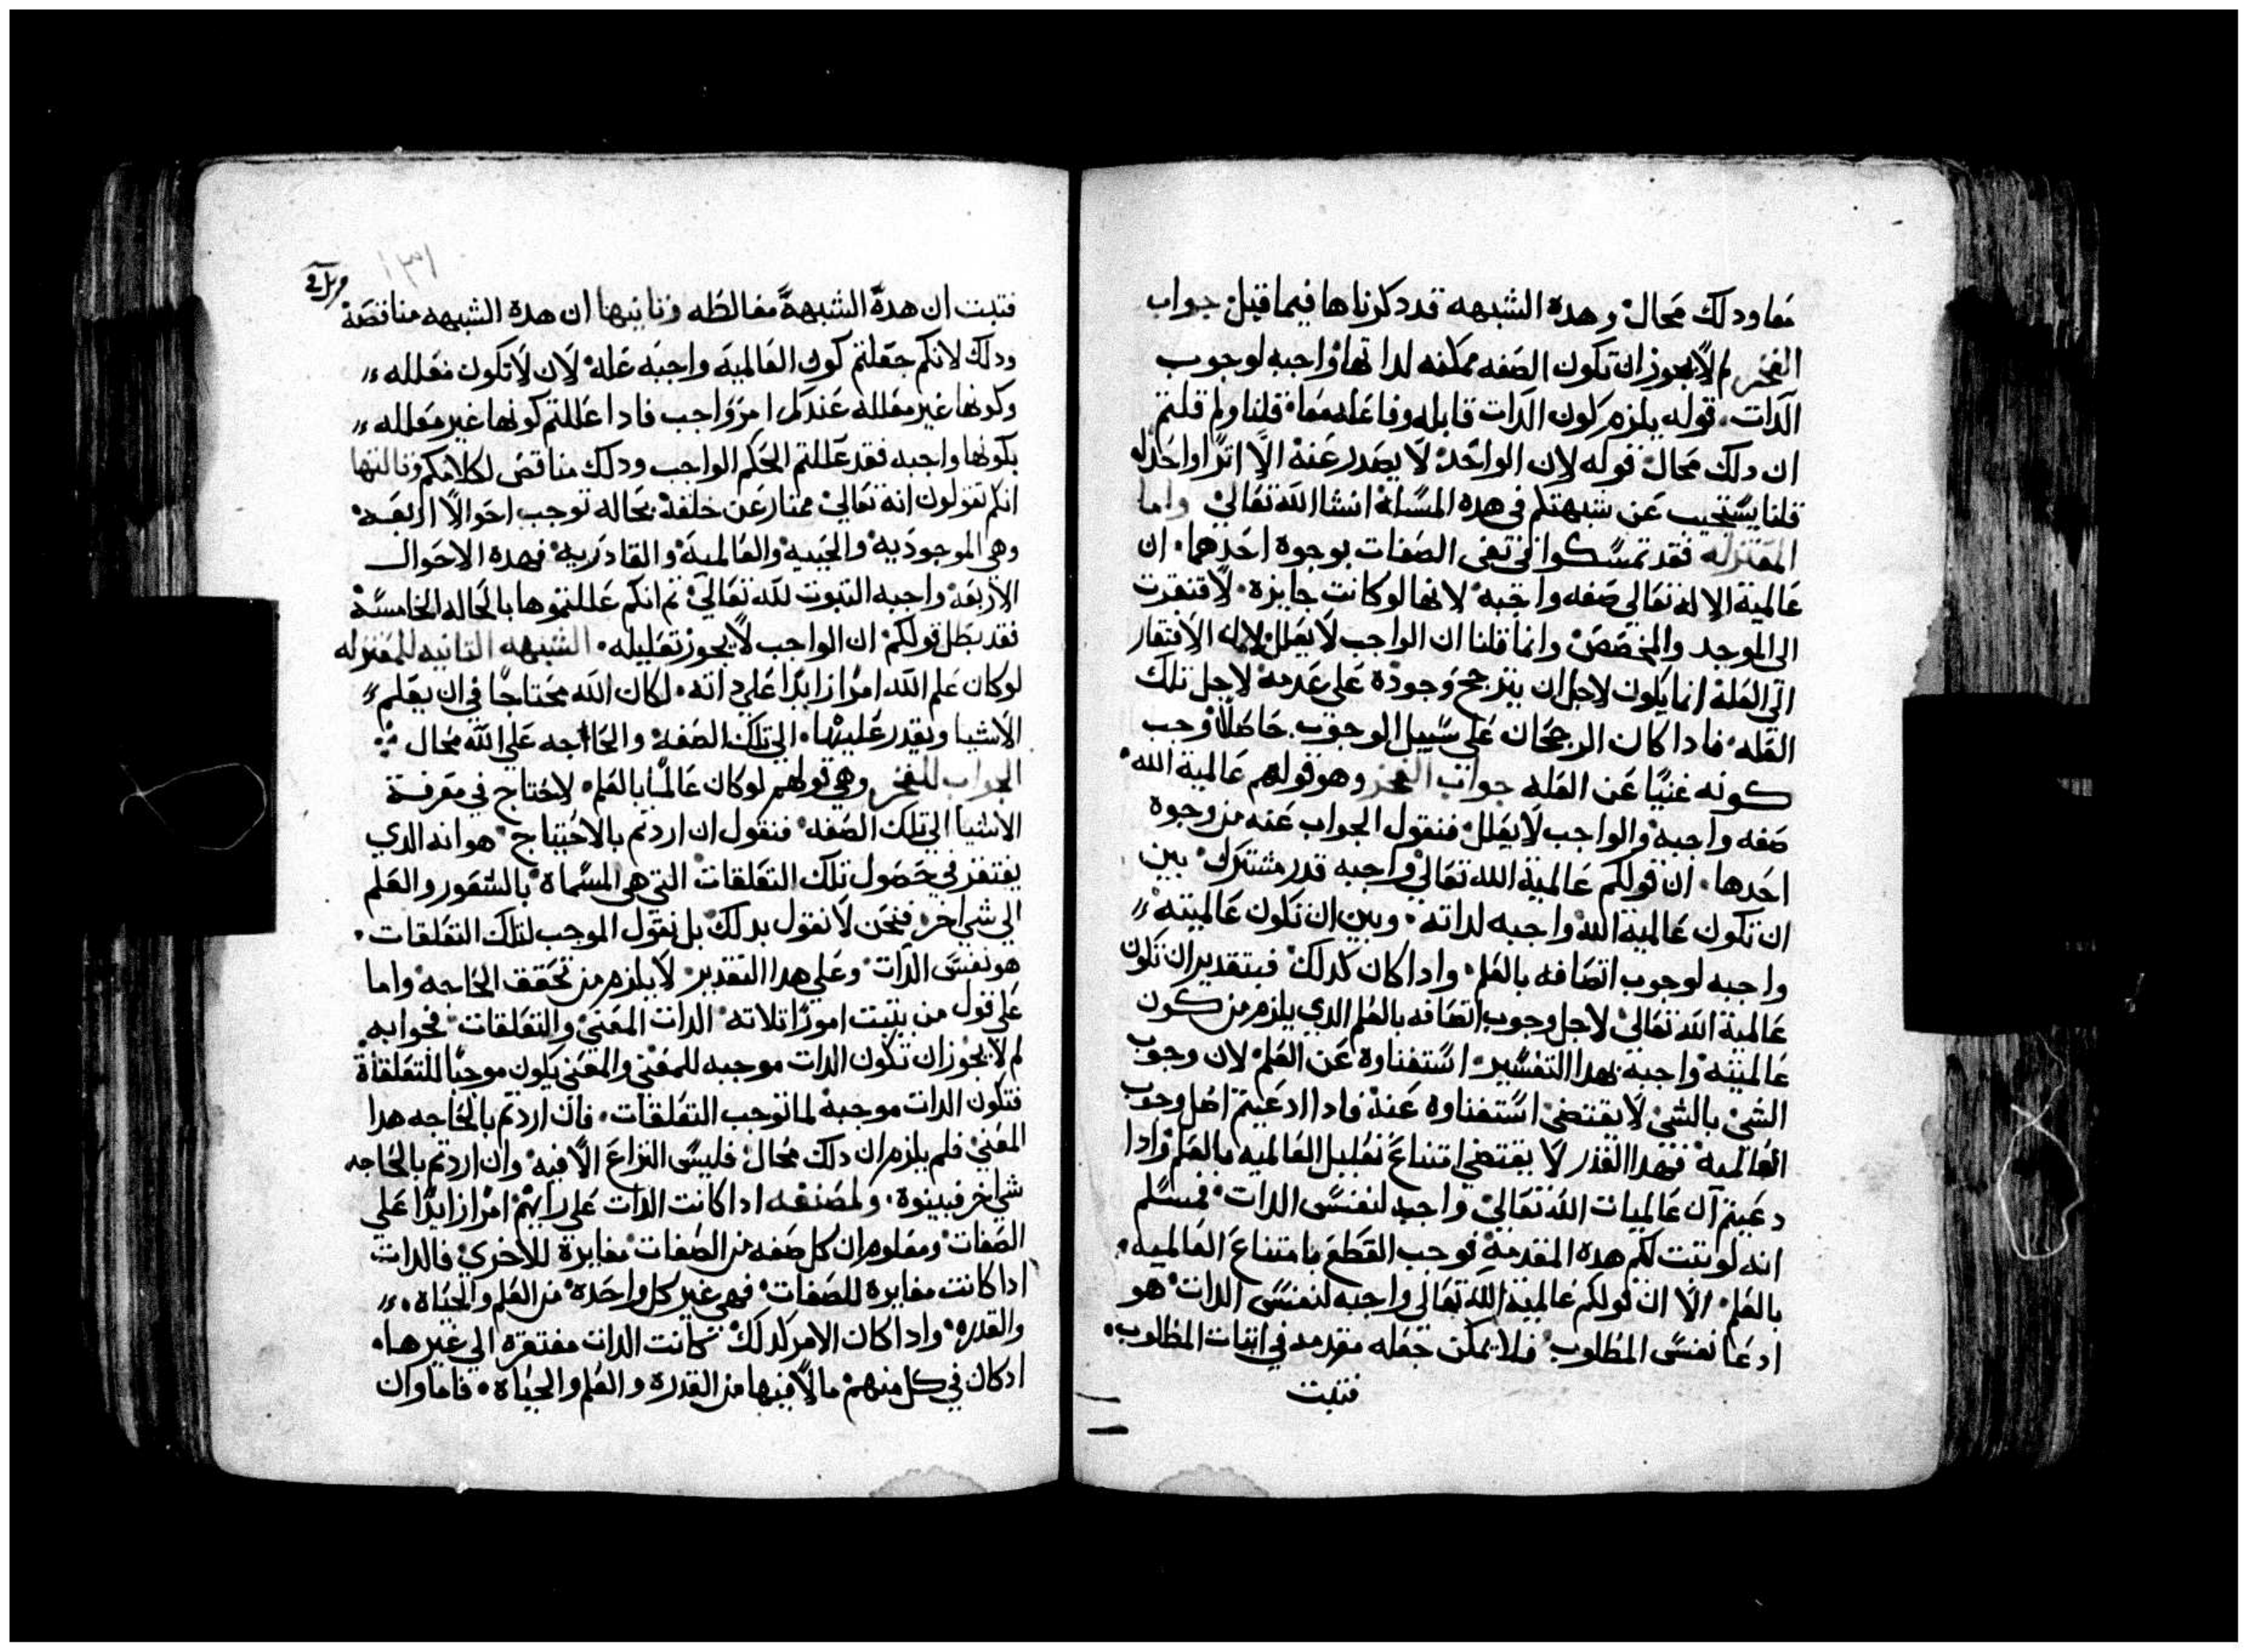 معا ودلك محال وهده الشبهه قد دكرناها فيما قبل جواب
الفخر لم لا يجوز ان تكون الصفه ممكنه لداتها واجبه لوجوب
الدات. قوله يلزم كون الدات قابله وفاعله معا قلنا ولم قلتم
ان دلك محال قوله لان الواحد لا يصدر عنه الا اترا واحدا
قلنا يستجيب عن شبهتكم في هده المسالة انشا الله تعالي واما
المعتزله فقد تمسكوا في نفي الصفات بوجوه احدهما. ان
عالمية الاله تعالي صفه واجبه لانها لو كانت جايزه لافتقرت
الي الموجد والمخصص وانما قلنا ان الواجب لا يعلل لان الافتقار
الي العلة انما يكون لاجل ان يترجح وجوده علي عدمه لاجل تلك
العله فادا كان الرجحان علي سبيل الوجوب. حاصلا وجب
كونه غنيا عن العله جواب الفخر وهو قولهم عالمية الله
صفه واجبه والواجب لا يعلل فنقول الجواب عنه من وجوه
احدها. ان قولكم عالمية الله تعالي واجبه قدر مشترك بين
ان تكون عالمية الله واجبه لداته وبين ان تكون عالميته
واجبه لوجوب اتصافه بالعلم. وادا كان كدلك فبتقدير ان تكون
عالمية الله تعالي لاجل وجوب اتصافه بالعلم الدي يلزم من كون
عالميته واجبة بهدا التفسير استغناوه عن العلم لان وجوب
الشي بالشي لا يقتضي استغناوه عنه فادا ادعيتم اصل وجوب
العالميه فهدا القدر لا يقتضي امتناع تعليل العالميه بالعلم وادا
دعيتم ان عالميات الله تعالي واجبه لنفس الدات فمسلم
انه لو تبتت لكم هده المقدمة توجب القطع بامتناع العالميه.
بالعلم. الا ان قولكم عالمية الله تعالي واجبه لنفس الدات هو
ادعا نفس المطلوب فلا يمكن جعله مقدمه في اتبات المطلوب.
فتبت
١٣١
فتبت ان هدة الشبهة مغالطه وتانيها ان هده الشبهه مناقضة
ودلك لانكم جعلتم كون العالمية واجبه علة لان لا تكون معلله
وكونها غير معللة عندكم امر واجب فادا عللتم كونها غير معلله
بكونها واجبه فقد عللتم الحكم الواجب ودلك مناقض لكلامكم وتالتها
انكم تقولون انه تعالي ممتاز عن خلقه بحاله توجب احوالا اربعه
وهي الموجوديه والحييه والعالمية والقادريه فهده الاحوال
الاربعه واجبه التبوت لله تعالي تم انكم عللتموها بالحاله الخامسة
فقد بطل قولكم ان الواجب لا يجوز تعليله. الشبهه التانيه للمعتزله
لو كان علم الله امرا زايدا علي داته. لكان الله محتاجا في ان يعلم
الاشيا ويقدر عليها. الي تلك الصفه والحاجه علي الله محال
الجواب للفخر وهي قولهم لو كان عالما بالعلم. لاحتاج في معرفة
الاشيا الي تلك الصفه فنقول ان اردتم بالاحتياج هو انه الدي
يفتقر في حصول تلك التعلقات التي هي المسماة بالشعور والعلم
الي شي اخر فنحن لا نقول بدلك بل نقول الموجب لتلك التعلقات.
هو نفس الدات وعلي هدا التقدير لا يلزم من تحقق الحاجه واما
علي قول من يتبت امورا تلاته الدات المعني والتعلقات فجوابه
لم لا يجوز ان تكون الدات موجبه للمعني والمعني يكون موجبا للتعلقاة
فتكون الدات موجبة لما توجب التعلقات. فان اردتم بالحاجه هدا
المعني فلم يلزم ان دلك محال فليس النزاع الا فيه وان اردتم بالحاجه
شي اخر فبينوه. ولمصنفه ادا كانت الدات علي رايهم امرا زايدا علي
الصفات ومعلوم ان كل صفه من الصفات مغايرة للاخري فالدات
ادا كانت مغايره للصفات فهي غير كل واحده من العلم والحياه.
والقدره. وادا كان الامر كدلك كانت الدات مفتقره الي غيرها.
اد كان في كل منهم ما لا فيها من القدره والعلم والحياه. فاما وان